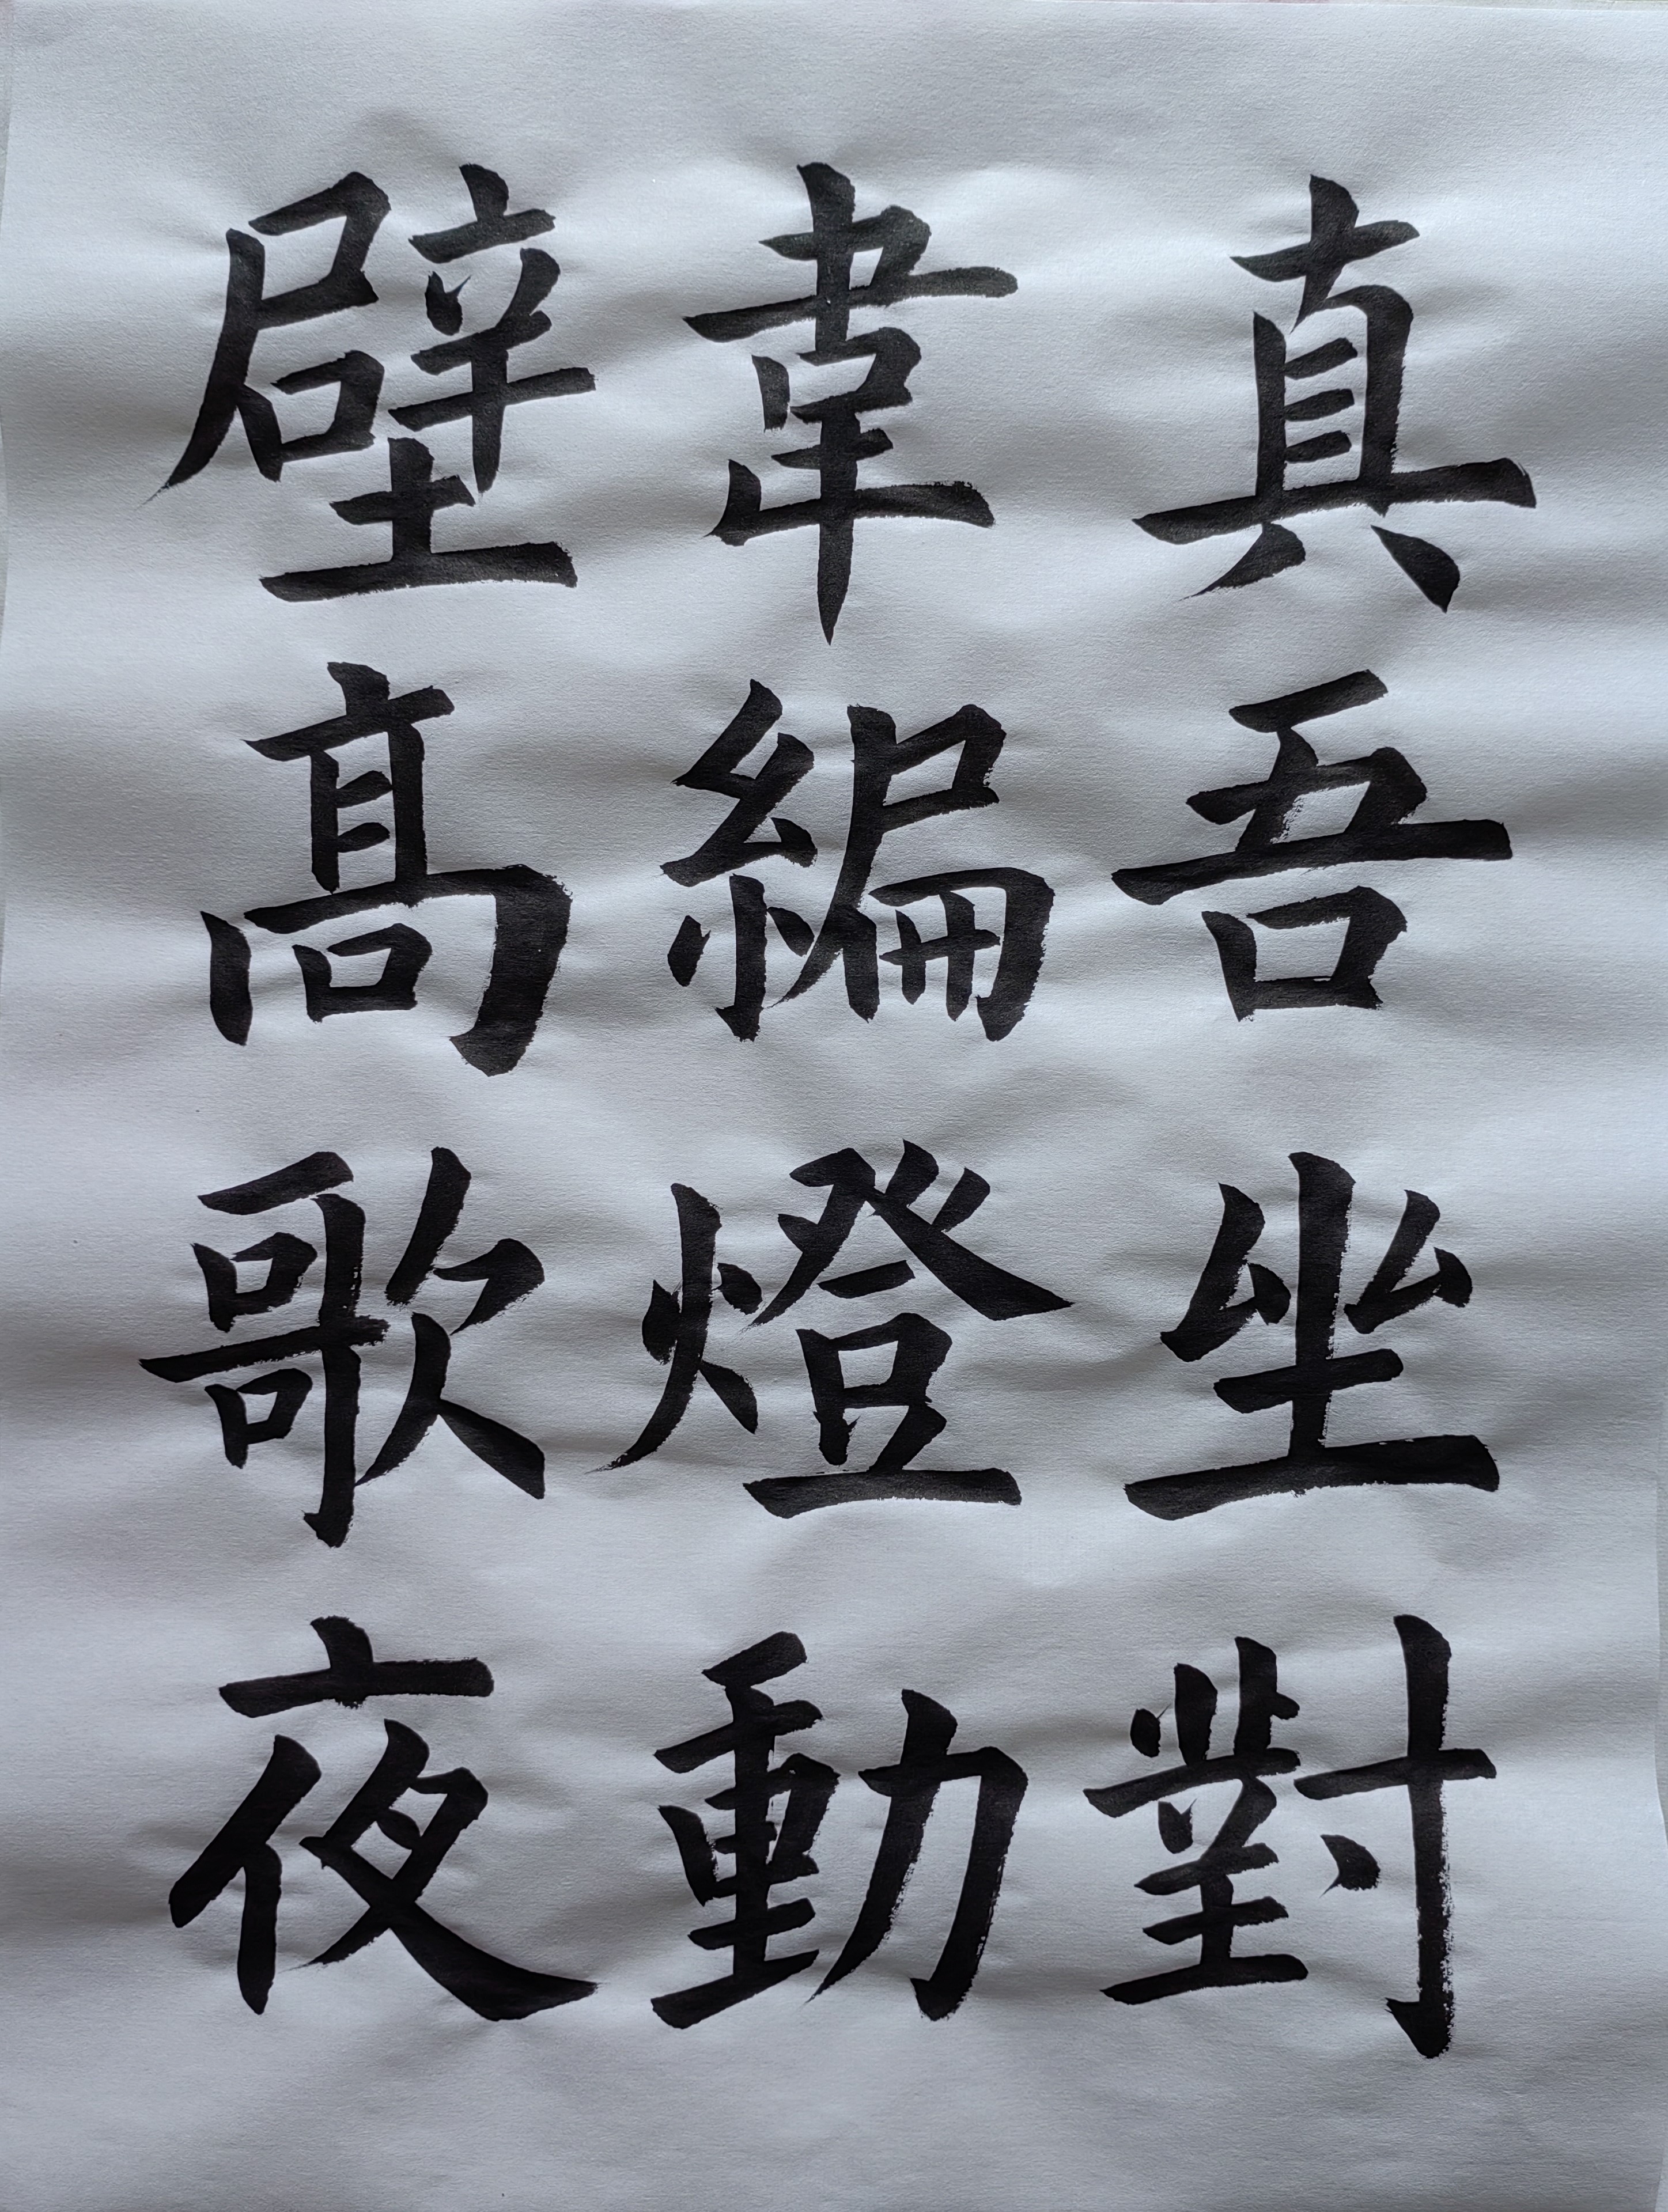 真吾坐對
韋編燈動
壁高歌夜